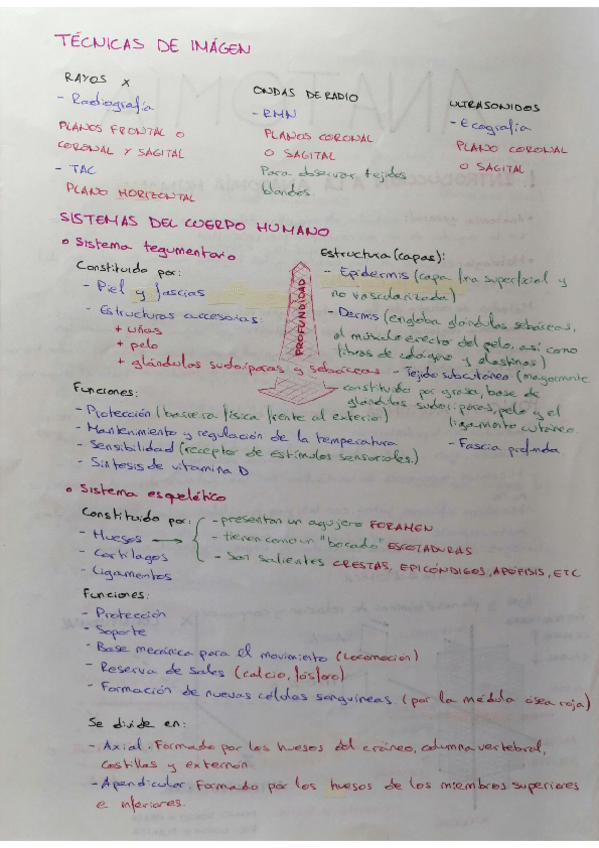 TÉCNICAS DE IMÁGEN
RAYOS X
- Radiografía
PLANOS FRONTAL O
CORONAL Y SAGITAL
- TAC
PLANO HORIZONTAL
ONDAS DE RADIO
- RMN
PLANOS CORONAL
O SAGITAL
Para observar tejidos
blandos.
ULTRASONIDOS
- Ecografía
PLANO CORONAL
O SAGITAL
SISTEMAS DEL CUERPO HUMANO
o Sistema tegumentario
Constituido por:
- Piel y fascias
- Estructuras accesorias:
+ uñas
+ pelo
+ glándulas sudoríparas y sebáceas
PROFUNDIDAD
Estructura (capas):
- Epidermis (capa fina superficial y
no vascularizada)
- Dermis (engloba glándulas sebáceas,
el músculo erecto del pelo, así como
fibras de colágeno y elastinas)
- Tejido subcutáneo (mayormente
constituido por grasa, base de
glándulas sudoríparas, pelo y el
ligamento cutáneo
- Fascia profunda
Funciones:
- Protección (barrera física frente al exterior)
- Mantenimiento y regulación de la temperatura
- Sensibilidad (receptor de estímulos sensoriales.)
- Síntesis de vitamina D
o Sistema esquelético
Constituido por:
- Huesos
- Cartílagos
- Ligamentos
- presentan un agujero FORAMEN
- tienen como un "bocado" ESCOTADURAS
- Son salientes CRESTAS, EPICÓNDIGOS, APÓFISIS, ETC
Funciones:
- Protección
- Soporte
- Base mecánica para el movimiento (locomoción)
- Reserva de sales (calcio, fósforo)
- Formación de nuevas células sanguíneas. (por la médula ósea roja)
Se divide en:
- Axial. Formado por los huesos del cráneo, columna vertebral,
costillas y externón.
- Apendicular. Formado por los huesos de los miembros superiores
e inferiores.